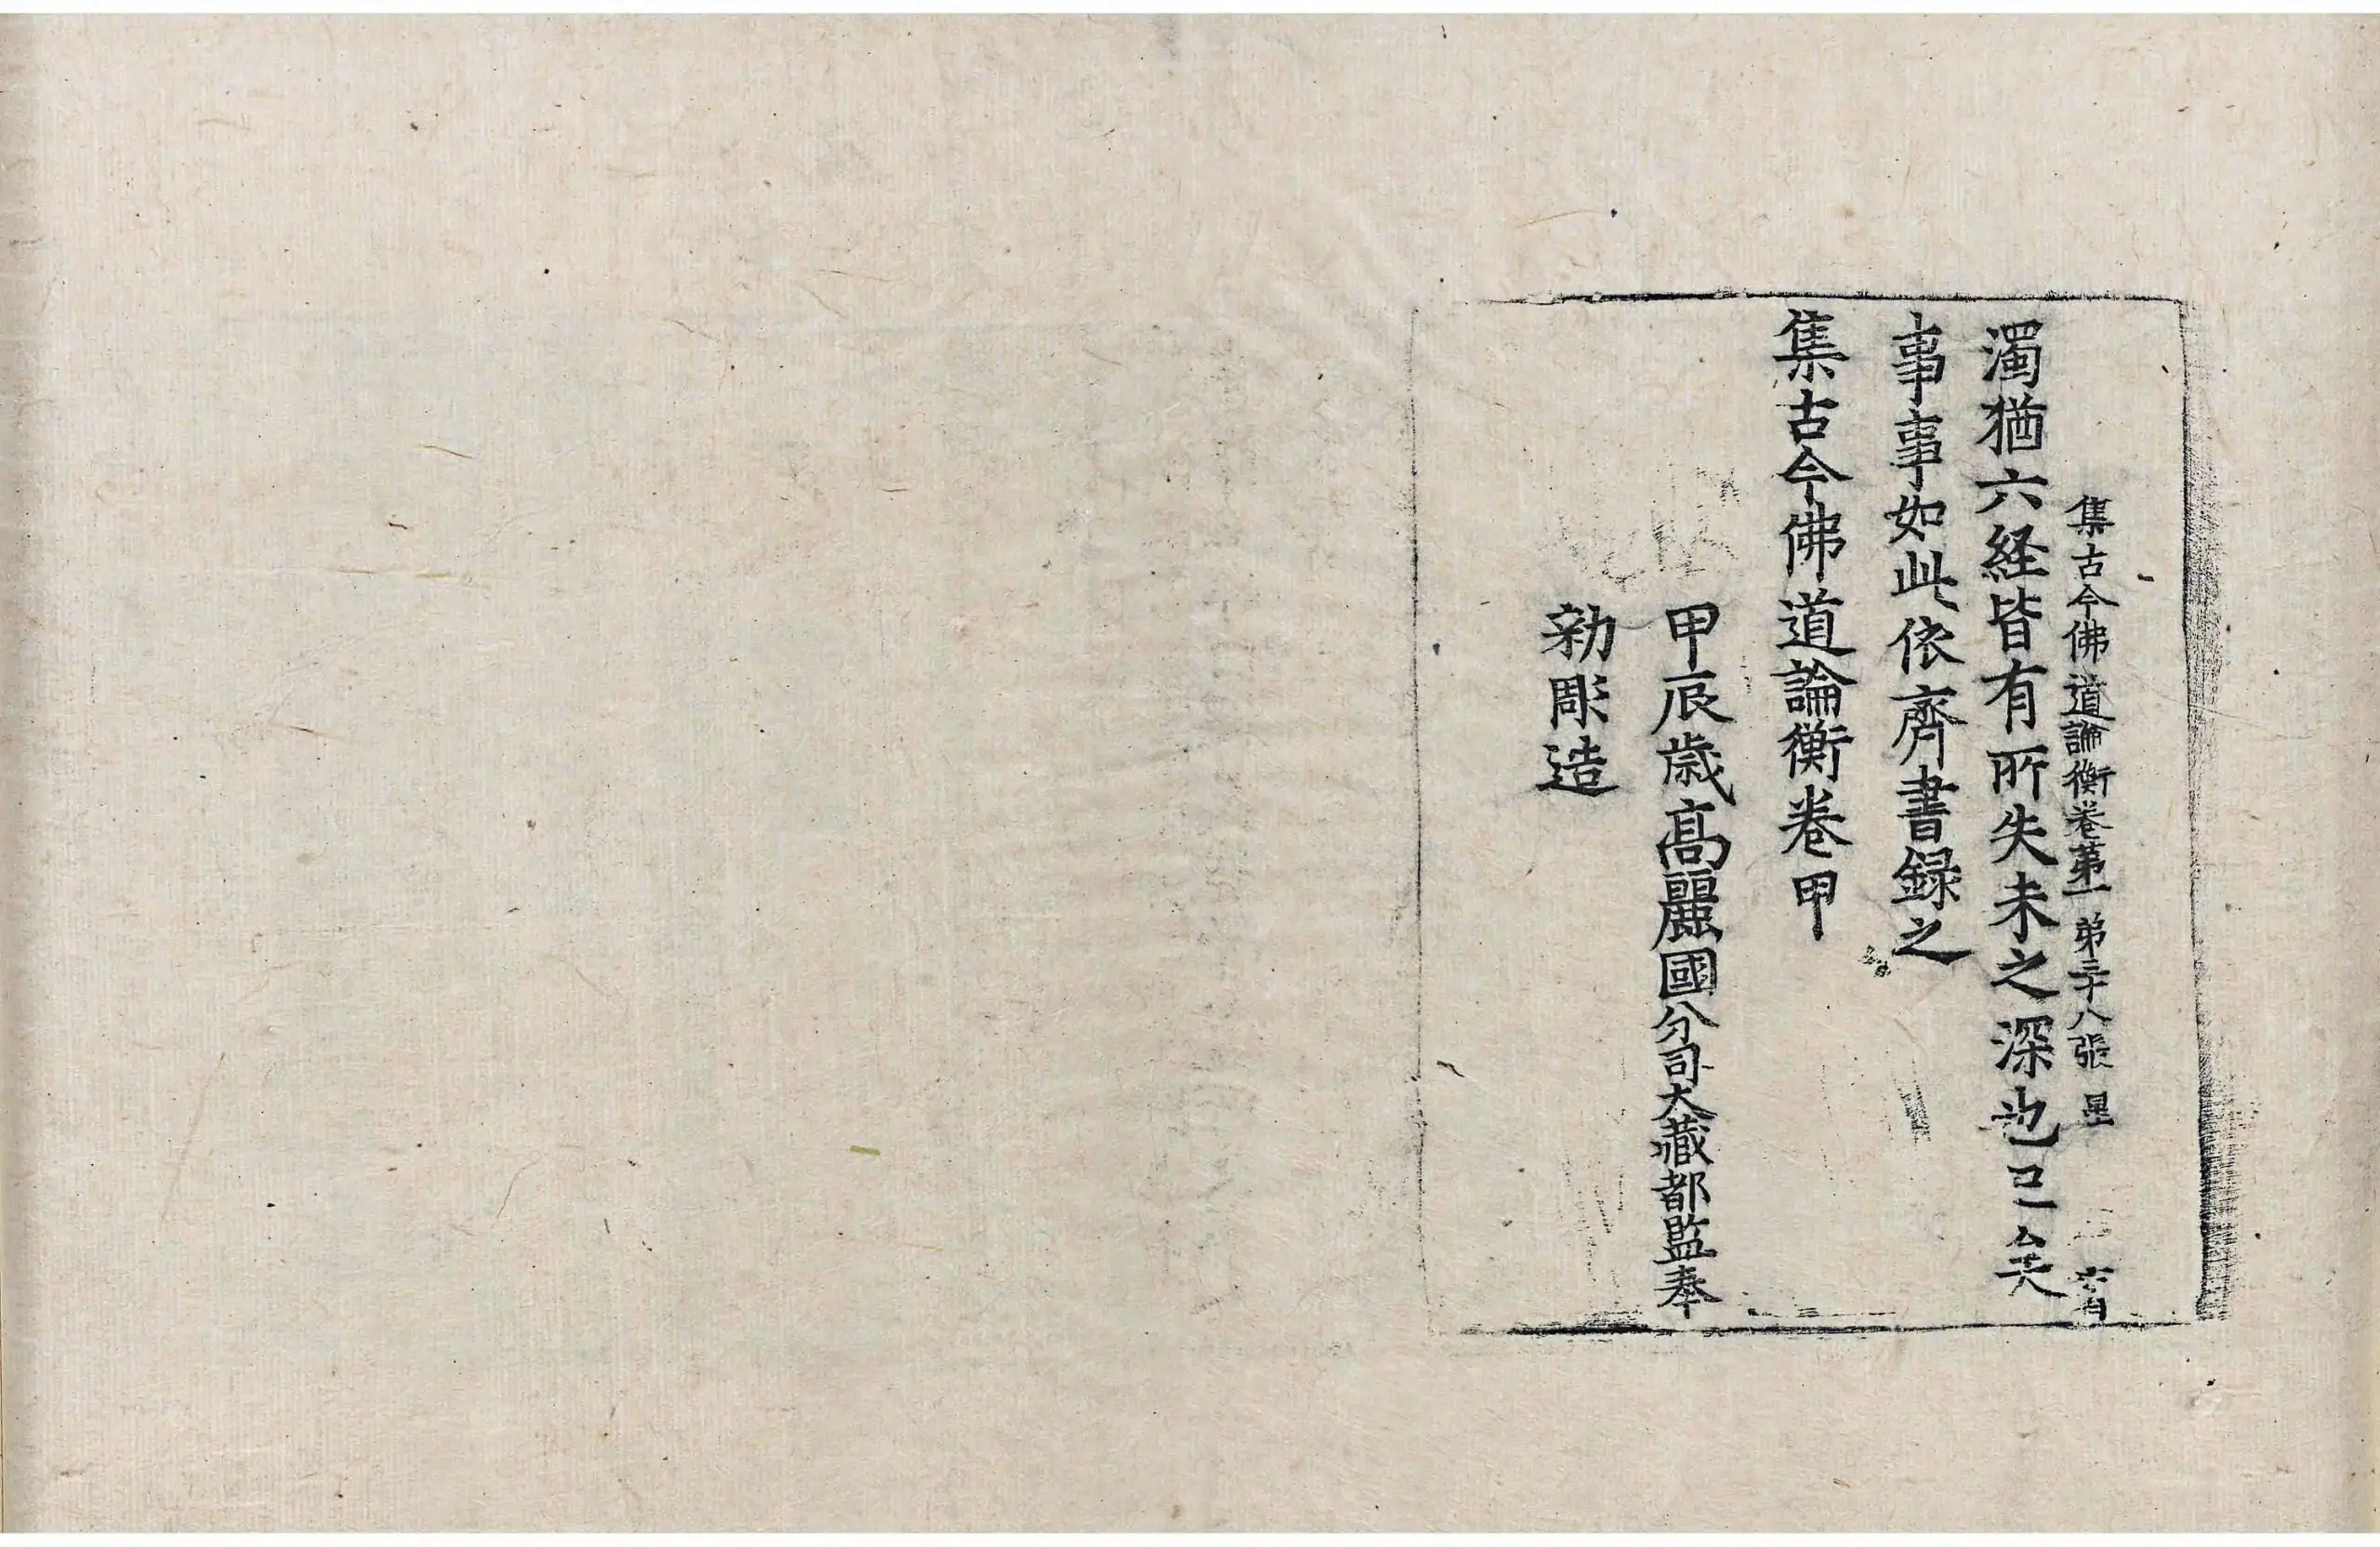 集古今佛道論衡卷苐一 弟三十八張 星
濁猶六経皆有所失未之深也已矣
事事如此依齊書録之
集古今佛道論衡卷甲
甲辰歳髙麗國分司大藏都監奉
勑彫造